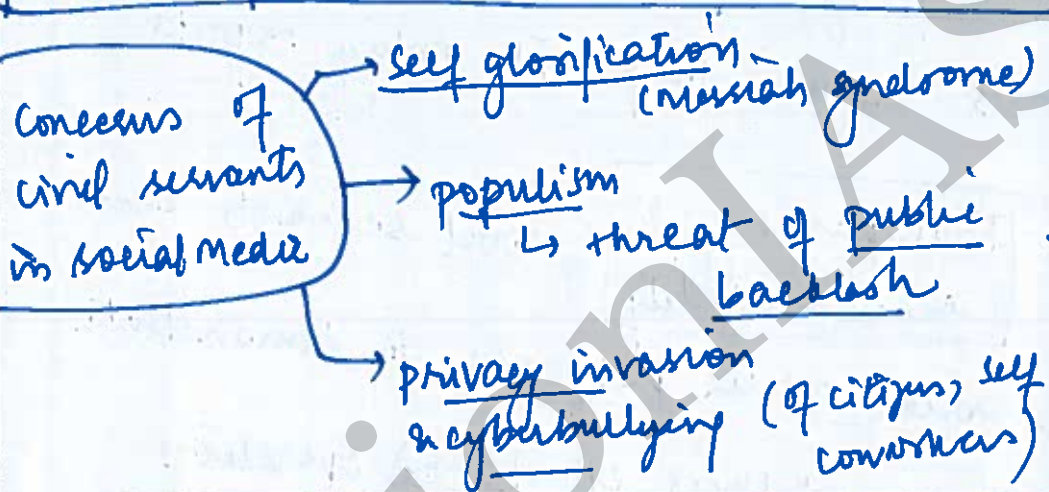 Concerns of
civil servants
in social media
→ self glorification
(Messiah syndrome)
→ populism
↳ threat of public
backlash
→ privacy invasion
& cyberbullying (of citizens, self
coworkers)
ionIAS